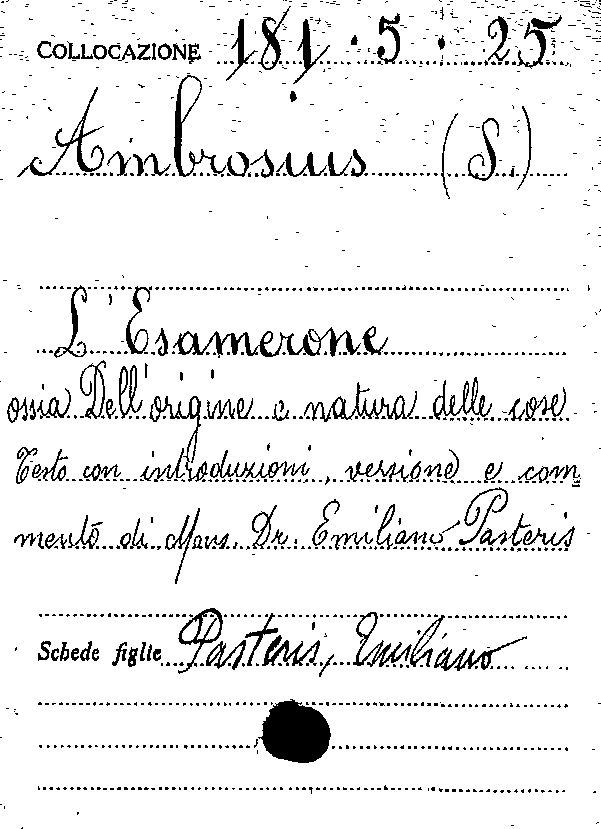 COLLOCAZIONE 181 · 5 · 25
Ambrosius (S.)
L'Esamerone
ossia Dell'origine e natura delle cose
Testo con introduzioni, versione e com
mento di Mons. Dr. Emiliano Pasteris
Schede figlie Pasteris, Emiliano